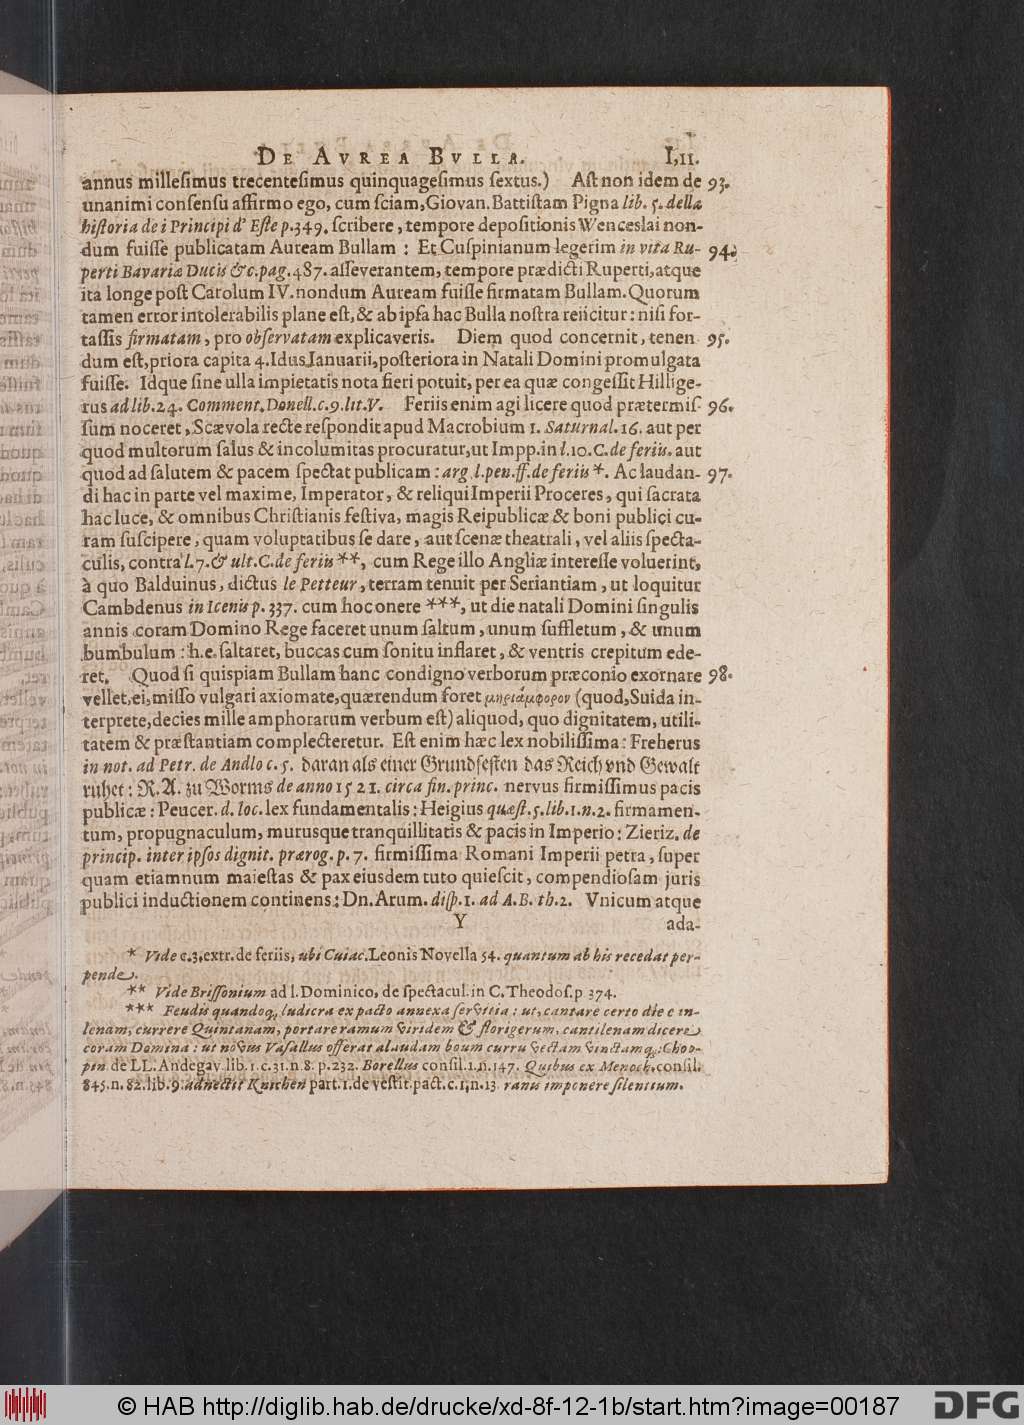 DE AVREA BVLLA. I,II.
annus millesimus trecentesimus quinquagesimus sextus.) Ast non idem de 93.
unanimi consensu affirmo ego, cum sciam, Giovan. Battistam Pigna lib. 5. della
historia de i Principi d' Este p. 349. scribere, tempore depositionis Wenceslai non-
dum fuisse publicatam Auream Bullam : Et Cuspinianum legerim in vita Ru- 94.
perti Bavariæ Ducis &c. pag. 487. asseverantem, tempore prædicti Ruperti, atque
ita longe post Carolum IV. nondum Auream fuisse firmatam Bullam. Quorum
tamen error intolerabilis plane est, & ab ipsa hac Bulla nostra reiicitur : nisi for-
tassis firmatam, pro observatam explicaveris. Diem quod concernit, tenen 95.
dum est, priora capita 4. Idus Ianuarii, posteriora in Natali Domini promulgata
fuisse. Idque sine ulla impietatis nota fieri potuit, per ea quæ congessit Hillige-
rus ad lib. 24. Comment. Donell. c. 9. lit. V. Feriis enim agi licere quod prætermis- 96.
sum noceret, Scævola recte respondit apud Macrobium 1. Saturnal. 16. aut per
quod multorum salus & incolumitas procuratur, ut Impp. in l. 10. C. de feriis. aut
quod ad salutem & pacem spectat publicam : arg. l. pen. ff. de feriis *. Ac laudan- 97.
di hac in parte vel maxime, Imperator, & reliqui Imperii Proceres, qui sacrata
hac luce, & omnibus Christianis festiva, magis Reipublicæ & boni publici cu-
ram suscipere, quam voluptatibus se dare, aut scenæ theatrali, vel aliis specta-
culis, contra l. 7. & ult. C. de feriis **, cum Rege illo Angliæ interesse voluerint,
à quo Balduinus, dictus le Petteur, terram tenuit per Seriantiam, ut loquitur
Cambdenus in Icenis p. 337. cum hoc onere ***, ut die natali Domini singulis
annis coram Domino Rege faceret unum saltum, unum suffletum, & unum
bumbulum : h.e. saltaret, buccas cum sonitu inflaret, & ventris crepitum ede-
ret. Quod si quispiam Bullam hanc condigno verborum præconio exornare 98.
vellet, ei, misso vulgari axiomate, quærendum foret μηριάμφορον (quod, Suida in-
terprete, decies mille amphorarum verbum est) aliquod, quo dignitatem, utili-
tatem & præstantiam complecteretur. Est enim hæc lex nobilissima : Freherus
in not. ad Petr. de Andlo c. 5. daran als einer Grundfesten das Reich vnd Gewalt
ruhet : R. A. zu Worms de anno 1521. circa fin. princ. nervus firmissimus pacis
publicæ : Peucer. d. loc. lex fundamentalis : Heigius quæst. 5. lib. 1. n. 2. firmamen-
tum, propugnaculum, murusque tranquillitatis & pacis in Imperio : Zieriz. de
princip. inter ipsos dignit. prærog. p. 7. firmissima Romani Imperii petra, super
quam etiamnum maiestas & pax eiusdem tuto quiescit, compendiosam juris
publici inductionem continens : Dn. Arum. disp. 1. ad A. B. th. 2. Vnicum atque
Y ada-
* Vide c. 3. extr. de feriis, ubi Cuiac. Leonis Novella 54. quantum ab his recedat per-
pende.
** Vide Brissonium ad l. Dominico, de spectacul. in C. Theodos. p 374.
*** Feudis quandoq; ludicra ex pacto annexa servitia : ut, cantare certo die c in-
lenam, currere Quintanam, portare ramum viridem & florigerum, cantilenam dicere
coram Domina : ut novus Vasallus offerat alaudam boum curru vectam vinctamq;: Chop-
pin de LL. Andegav. lib. 1. c. 31. n. 8. p. 232. Borellus consil. 1. n. 147. Quibus ex Menoch. consil.
845. n. 82. lib. 9. adnectit Kuichen part. 1. de vestit. pact. c. 1, n. 13. ranis imponere silentium.
© HAB http://diglib.hab.de/drucke/xd-8f-12-1b/start.htm?image=00187
DFG